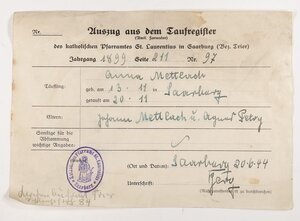 Nr.
Auszug aus dem Taufregister
(Amtl. Formular)
des katholischen Pfarramtes St. Laurentius in Saarburg (Bez. Trier)
Jahrgang 1899 Seite 211 Nr. 97
Täufling: Anna Mettlach
geb. am 13.11 in Saarburg
getauft am 20.11
Eltern: Johann Mettlach u. Agnes Petry
Sonstige für die
Abstammung
wichtige Angaben:
(Ort und Datum) Saarburg 20.6.44
Unterschrift: